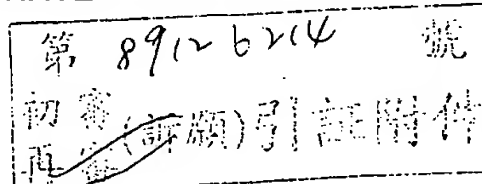 第 89126214 號
初審
再審(訴願)引証附件